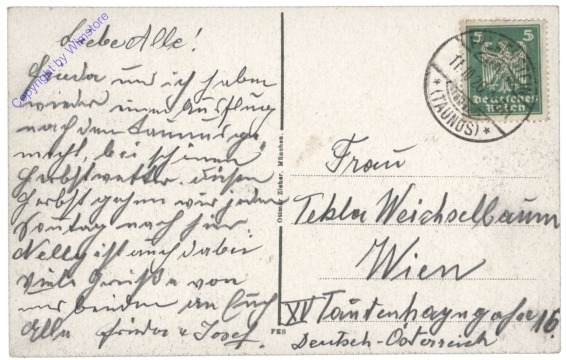 Liebe Alle!
Frieda und ich haben
wieder einen Ausflug
nach dem Taunus ge-
macht, bei schönem
Herbstwetter. Diesen
Herbst gehen wir jeden
Sonntag nach hier
Nelly ist auch dabei
Viele Grüße von
uns beiden an Euch
Alle Frieda & Josef.
Copyright by Wimstore
Ottmar Zieher, München.
FKS
5 5
Deutsches
Reich
* (TAUNUS) *
Frau
Tekla Weichselbaum
Wien
XV Tautenhayngasse 16.
Deutsch-Österreich